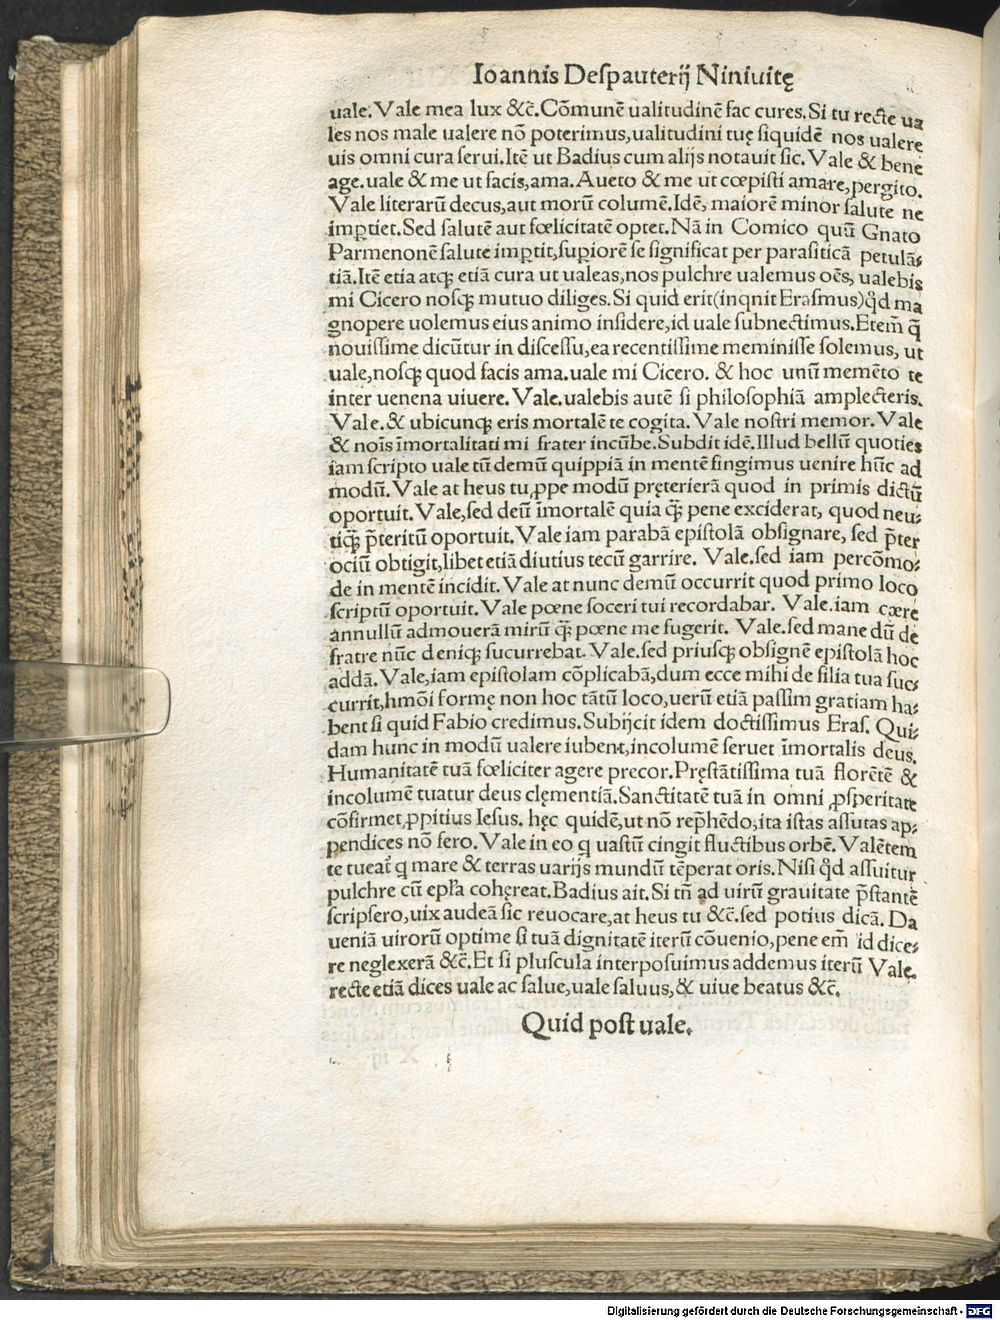 Ioannis Deſpauterij Niniuitę
uale. Vale mea lux &c̄. Cōmunē ualitudinē fac cures. Si tu recte ua
les nos male ualere nō poterimus, ualitudini tuę ſiquidē nos ualere
uis omni cura ſerui. Itē ut Badius cum alijs notauit ſic. Vale & bene
age. uale & me ut facis, ama. Aueto & me ut cœpiſti amare, pergito.
Vale literarū decus, aut morū columē. Idē, maiorē minor ſalute ne
imꝑtiet. Sed ſalutē aut fœlicitatē optet. Nā in Comico quū Gnato
Parmenonē ſalute imꝑtit, ſuꝑiorē ſe ſignificat per paraſiticā petulā⸗
tiā. Itē etia atqꝫ etiā cura ut ualeas, nos pulchre ualemus oēs, ualebis
mi Cicero noſqꝫ mutuo diliges. Si quid erit (inqnit Eraſmus) qd̄ ma
gnopere uolemus eius animo inſidere, id uale ſubnectimus. Etem̄ q̄
nouiſſime dicūtur in diſceſſu, ea recentiſſime meminiſſe ſolemus, ut
uale, noſqꝫ quod facis ama. uale mi Cicero. & hoc unū memēto te
inter uenena uiuere. Vale. ualebis autē ſi philoſophiā amplecteris.
Vale. & ubicunqꝫ eris mortalē te cogita. Vale noſtri memor. Vale
& noīs īmortalitati mi frater incūbe. Subdit idē. Illud bellū quoties
iam ſcripto uale tū demū quippiā in mentē fingimus uenire hūc ad
modū. Vale at heus tu, ꝓpe modū pręterierā quod in primis dictū
oportuit. Vale, ſed deū īmortalē quia qꝫ̄ pene exciderat, quod neu⸗
tiqꝫ̄ p̄teritū oportuit. Vale iam parabā epiſtolā obſignare, ſed p̄ter
ociū obtigit, libet etiā diutius tecū garrire. Vale. ſed iam percōmo⸗
de in mentē incidit. Vale at nunc demū occurrit quod primo loco
ſcriptū oportuit. Vale pœne ſoceri tui recordabar. Vale. iam cæré
annullū admouerā mirū qꝫ̄ pœne me fugerit. Vale. ſed mane dū de
fratre nūc deniqꝫ ſucurrebat. Vale. ſed priuſqꝫ obſignē epiſtolā hoc
addā. Vale, iam epiſtolam cōplicabā, dum ecce mihi de filia tua ſuc⸗
currit, hmōi formę non hoc tātū loco, uerū etiā paſſim gratiam ha⸗
bent ſi quid Fabio credimus. Subijcit idem doctiſſimus Eraſ. Qui⸗
dam hunc in modū ualere iubent, incolumē ſeruet īmortalis deus.
Humanitatē tuā fœliciter agere precor. Pręſtātiſſima tuā florētē &
incolumē tuatur deus clęmentiā. Sanctitatē tuā in omni ꝓſperitate
cōfirmet ꝓpitius Ieſus. hęc quidē, ut nō rep̄hēdo, ita iſtas aſſutas ap⸗
pendices nō fero. Vale in eo q uaſtū cingit fluctibus orbē. Valētem
te tueat̄ q mare & terras uarijs mundū tēperat oris. Niſi qd̄ aſſuitur
pulchre cū epl̄a cohęreat. Badius ait. Si tn̄ ad uirū grauitate p̄ſtantē
ſcripſero, uix audeā ſic reuocare, at heus tu &c̄. ſed potius dicā. Da
ueniā uirorū optime ſi tuā dignitatē iterū cōuenio, pene em̄ id dice⸗
re neglexerā &c̄. Et ſi pluſcula interpoſuimus addemus iterū Vale.
recte etiā dices uale ac ſalue, uale ſaluus, & uiue beatus &c̄.
Quid poſt uale.
Digitalisierung gefördert durch die Deutsche Forschungsgemeinschaft - DFG